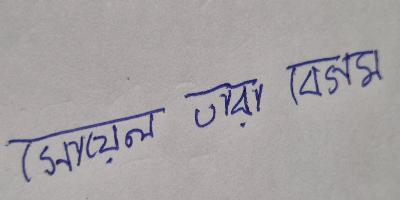 সোয়েল তারা বেগম